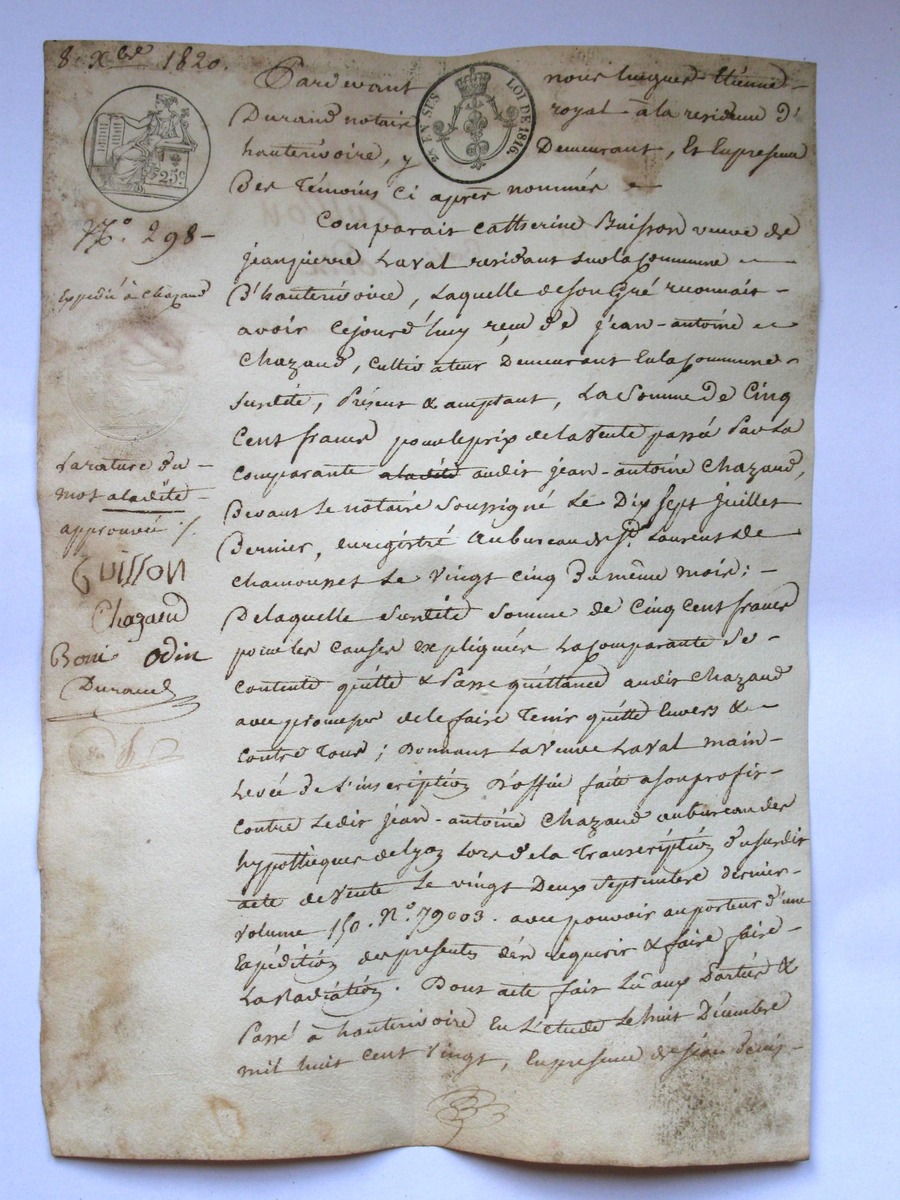 8. Xbre 1820.
Pardevant nous hugues Etienne
Durand notaire royal à la residence d'
hauterivoire, y Demeurant, Et En presence
Des Témoins Ci après nommés
2 EN SUS LOI DE 1816.
25c
No. 298
Expédié à Chazaud
Comparait Catherine Buisson veuve de
jean pierre Laval residant sur la Commune
D'hauterivoire, Laquelle de son Gré reconnait
avoir Cejourd'huy reçu de jean-antoine
Chazaud, Cultivateur Demeurant En la Commune
Susdité, Présent & acceptant, La Somme De Cinq
Cent francs pour le prix de la Vente passée Par La
Comparante aladité audit jean-antoine Chazaud,
Devant Le notaire Soussigné Le Dix Sept juillet
Dernier, enregistré au bureau de St Laurent de
Chamousset Le Vingt Cinq Du même mois;
De laquelle Susdité Somme de Cinq Cent francs
pour les Causes expliquées La Comparante Se
Contente quitte & Passe quittance audit Chazaud
avec promesse de le faire Tenir quitte Envers &
Contre Tous; Donnant La Veuve Laval main
Levée de l'inscription D'office faite a son profit
Contre Ledit jean-antoine Chazaud au bureau des
hypothéques de Lyon Lors de la Transcription du susdit
acte de Vente Le vingt Deux Septembre dernier
Volume 150. No. 79003. avec pouvoir au porteur d'une
Expédition des presentes d'en requerir & faire faire
La Radiation. Dont acte fait Lu aux Parties &
Passé à hauterivoire En L'étude Le huit Décembre
mil huit Cent Vingt, En presence de
La rature du
mot aladité
approuvée ./.
Buisson
Chazaud
Odin
Durand